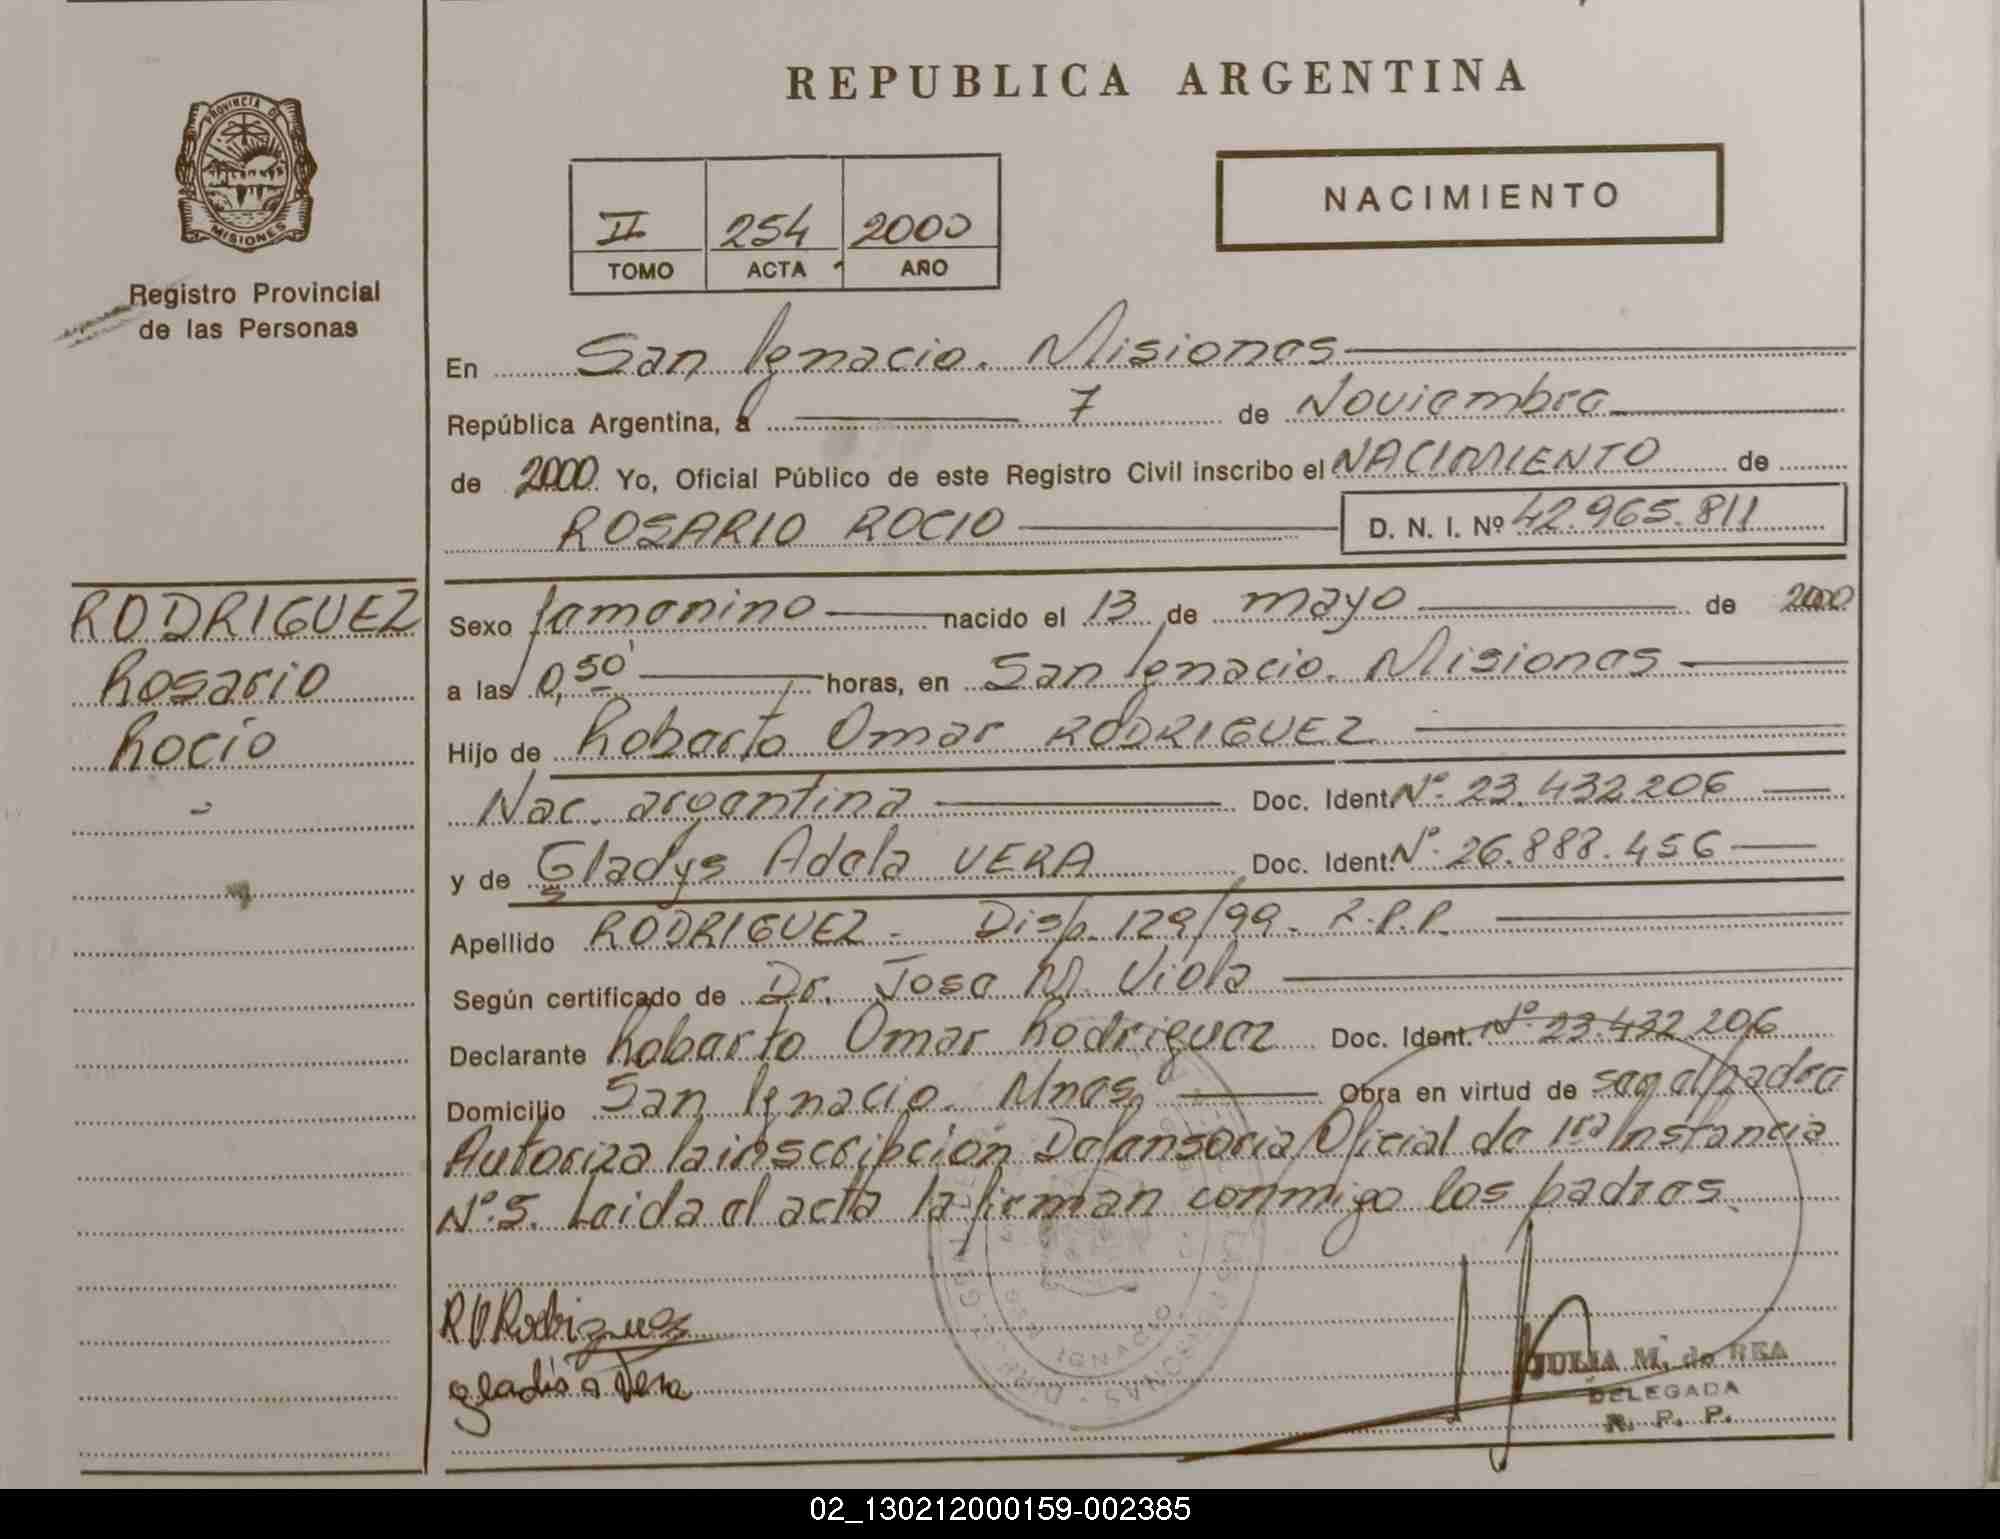 REPUBLICA ARGENTINA
PROVINCIA DE
MISIONES
Registro Provincial
de las Personas
NACIMIENTO
II 254 2000
TOMO ACTA AÑO
En San Ignacio. Misiones
República Argentina, a 7 de Noviembre
de 2000 Yo, Oficial Público de este Registro Civil inscribo el NACIMIENTO de
ROSARIO ROCIO D. N. I. Nº 42.965.811
RODRIGUEZ
Rosario
Rocío
Sexo femenino nacido el 13 de mayo de 2000
a las 0,50 horas, en San Ignacio. Misiones
Hijo de Roberto Omar RODRIGUEZ
Nac. argentina Doc. Ident. Nº. 23.432.206
y de Gladys Adela VERA Doc. Ident. Nº. 26.888.456
Apellido RODRIGUEZ - Disp. 129/99 - R.P.P.
Según certificado de Dr. Jose M. Viola
Declarante Roberto Omar Rodriguez Doc. Ident. Nº. 23.432.206
Domicilio San Ignacio. Mnes. Obra en virtud de ser el padre
Autoriza la inscripción Defensoria Oficial de 1ra Instancia
Nº. 5. Leida el acta la firman conmigo los padres.
R O Rodriguez
gladis a Vera
IGNACIO
JULIA M. de REA
DELEGADA
R. P. P.
02_130212000159-002385